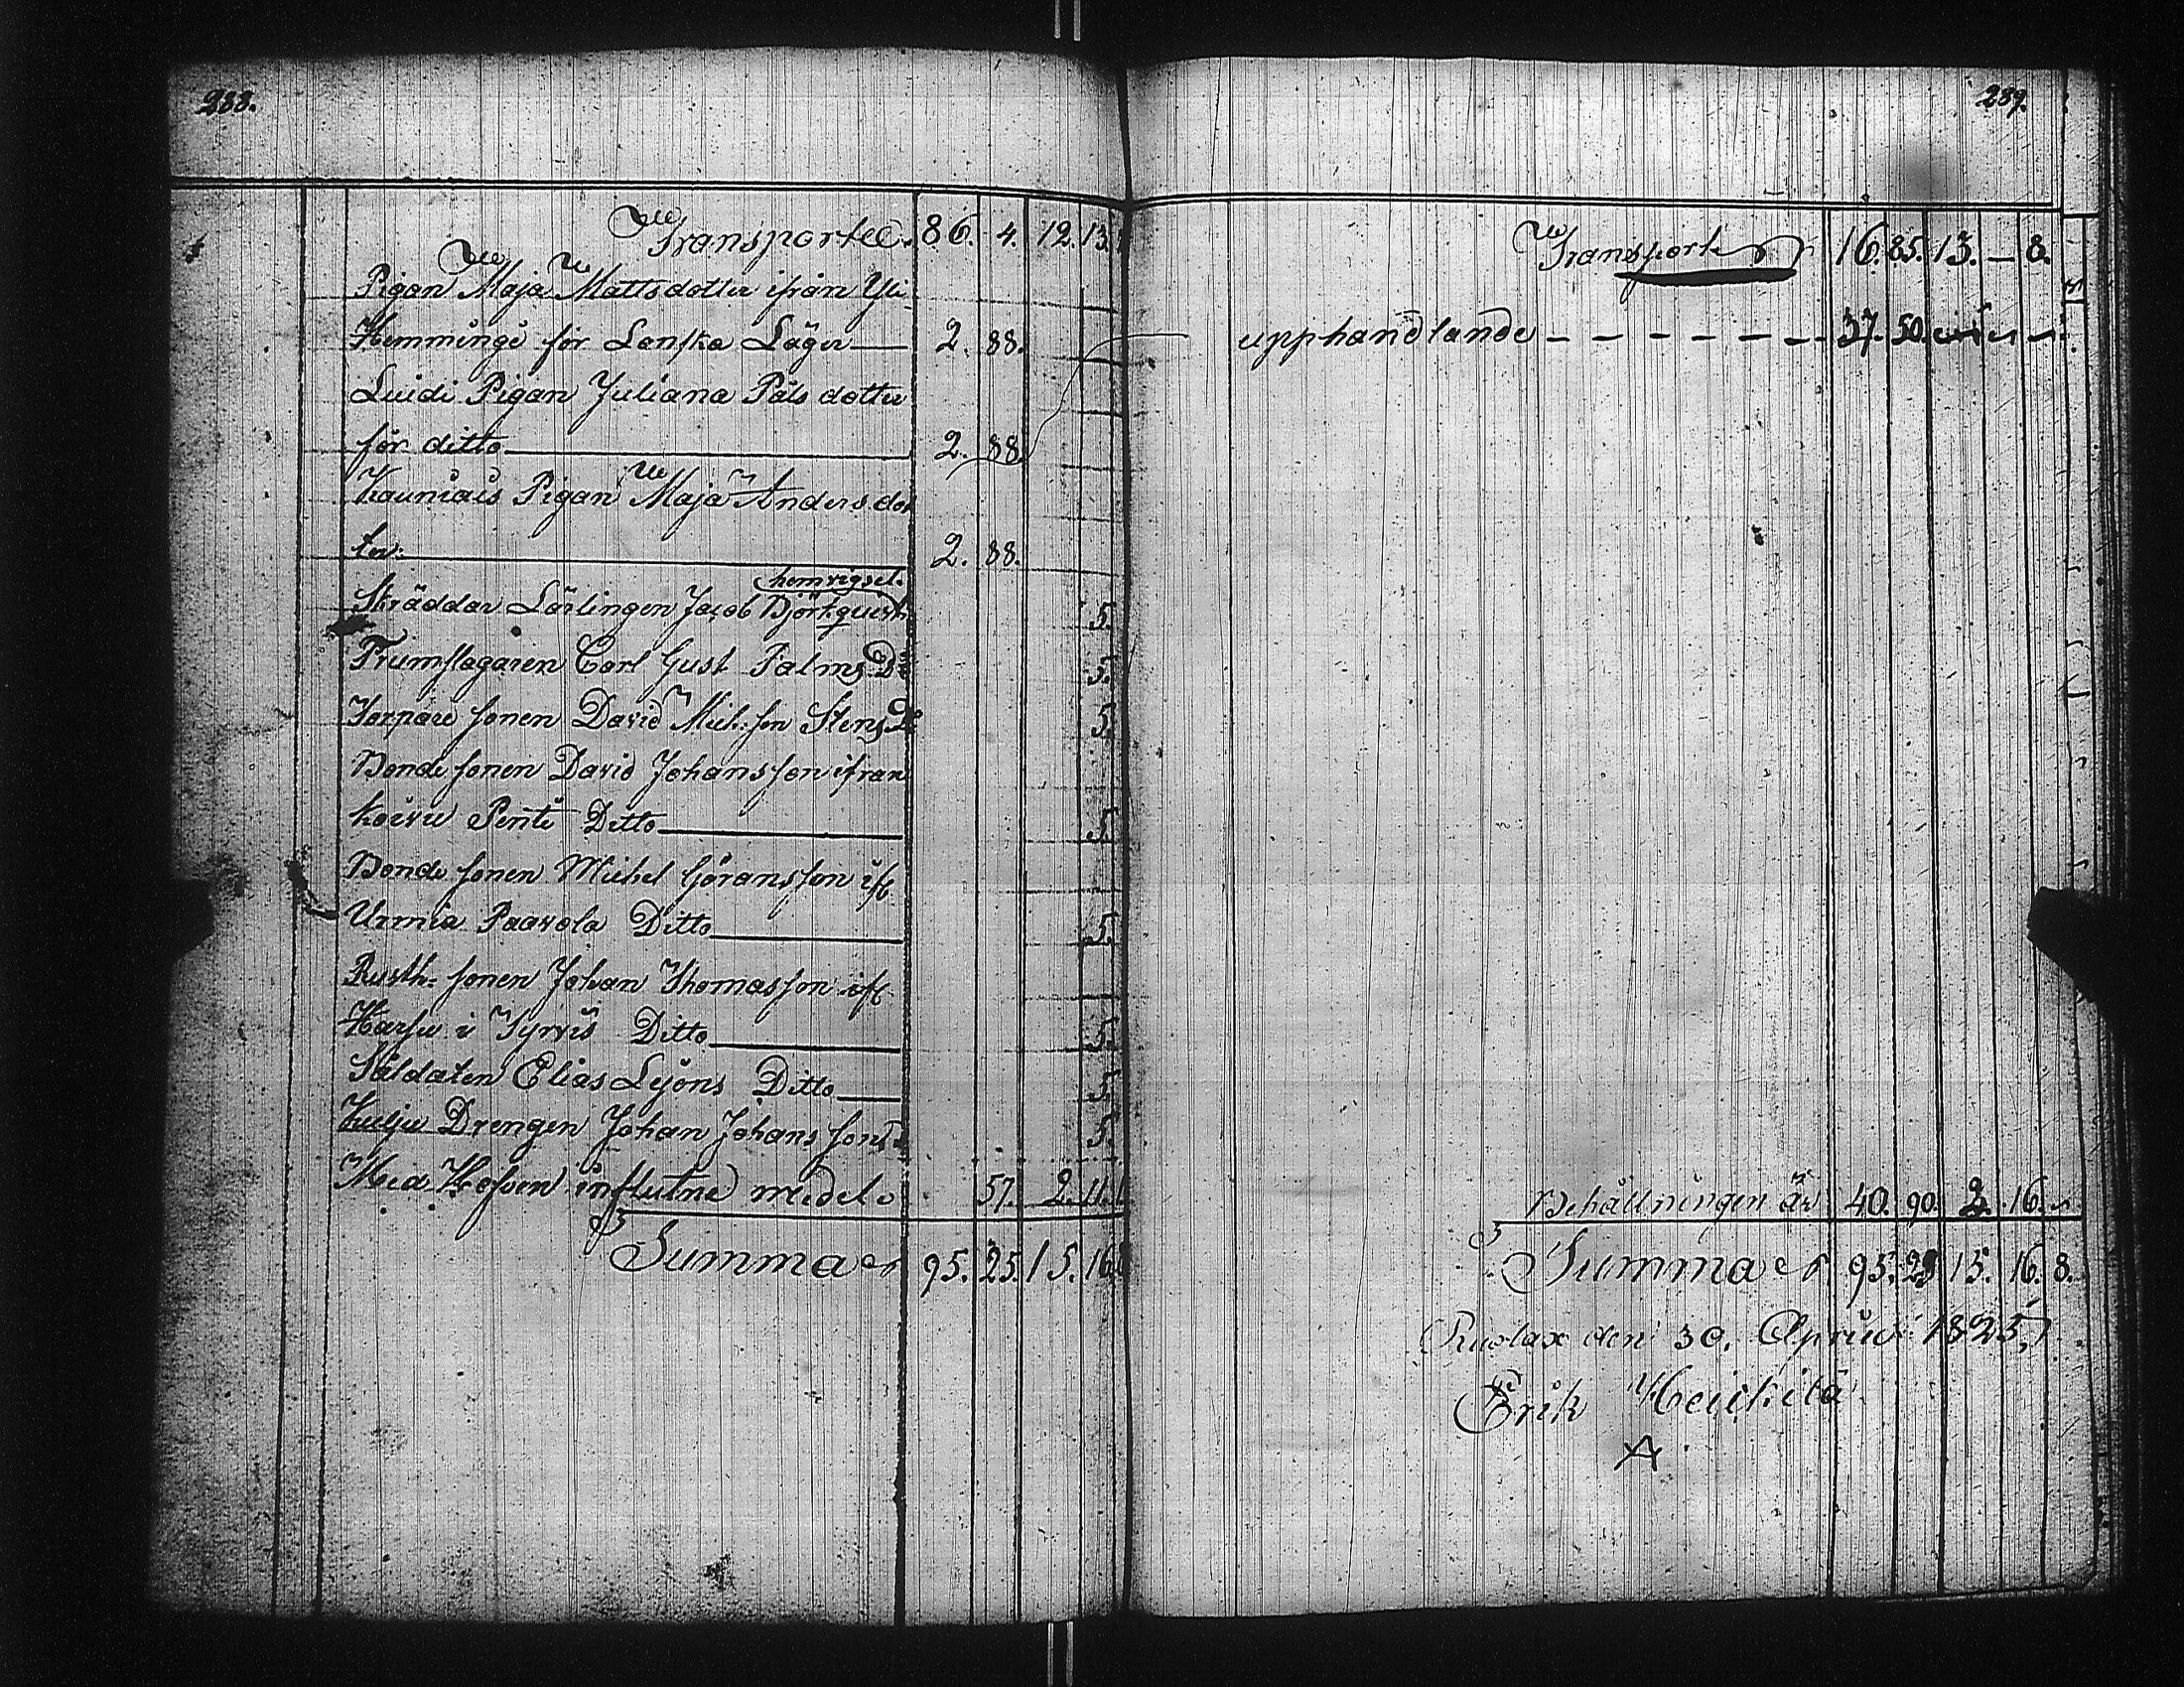 288.
Transporte 86. 4. 12. 13.
Pigan Maja Mattsdotter ifrån Yli
Hemmingi för Lenska Läger 2. 88.
Luidi Pigan Juliana Påls dotter
för ditto 2. 88
Kauniais Pigan Maja Anders dot
ter. 2. 88.
hemvigsel.
Skräddar Lärlingen Jacob Björkquist 5.
Trumslagaren Carl Gust Palms Do 5.
Torpare sonen David Mich:son Stens Do 5.
Bonde sonen David Johansson ifrån
Koivu Penti Ditto 5.
Bonde sonen Michel Göransson if
Urmia Paavola Ditto 5.
Rusth: sonen Johan Thomasson if
Harju i Tyrvis Ditto 5.
Såldaten Elias Lejons Ditto 5.
Kulju Drengen Johan Johans sons 5.
Med Håfven influtne medel 57. 2. 11.
Summa 95. 25. 15. 16.
289.
Transport 16. 85. 13. — 8.
upphandlande — — — — — — 37. 50.
Behållningen är 40. 90. 2. 16.
Summa 95. 25 15. 16. 8.
den 30. April 1825,
Erik Heickilä